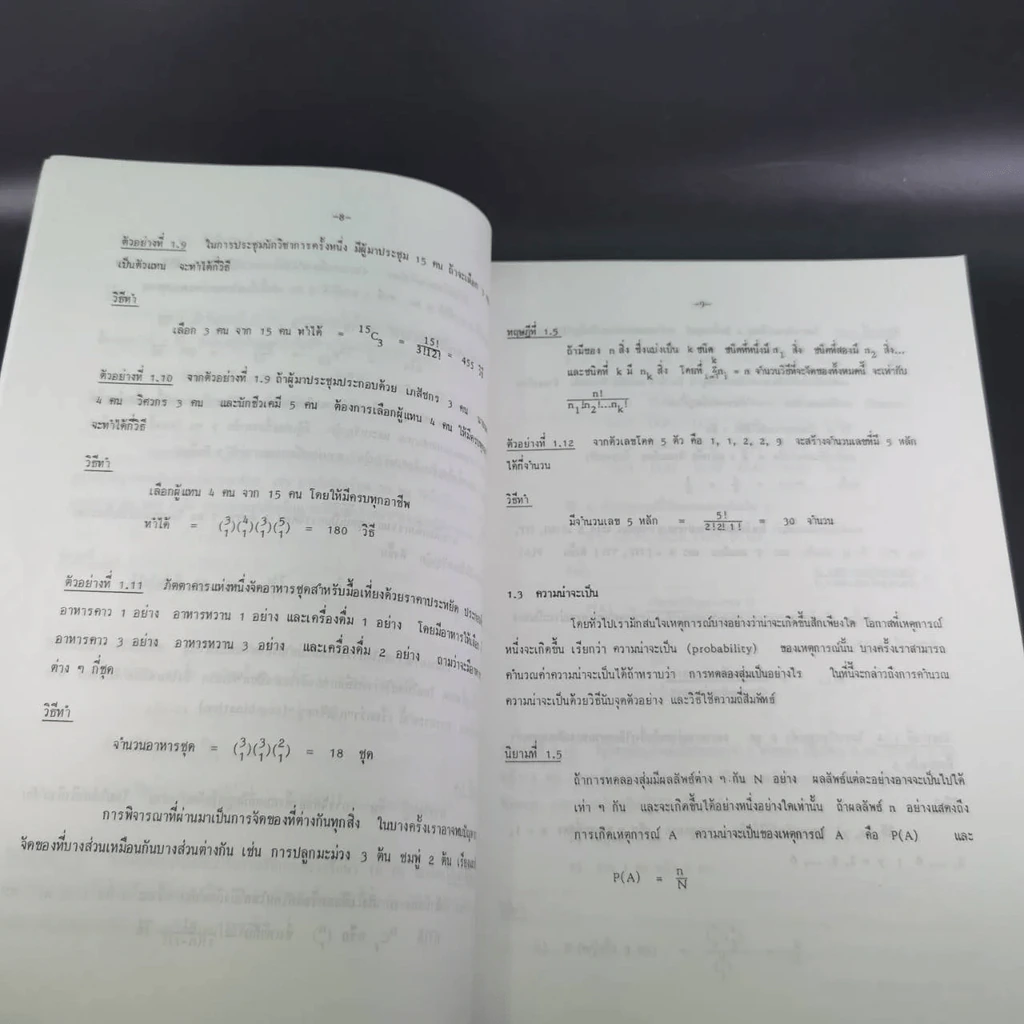 -8-
ตัวอย่างที่ 1.9 ในการประชุมนักวิชาการครั้งหนึ่ง มีผู้มาประชุม 15 คน ถ้าจะเลือก 3
เป็นตัวแทน จะทำได้กี่วิธี
วิธีทำ
เลือก 3 คน จาก 15 คน ทำได้ = ¹⁵C₃ = 15!/3!12! = 455 วิธี
ตัวอย่างที่ 1.10 จากตัวอย่างที่ 1.9 ถ้าผู้มาประชุมประกอบด้วย เภสัชกร 3 คน
4 คน วิศวกร 3 คน และนักชีวเคมี 5 คน ต้องการเลือกผู้แทน 4 คน ให้มีครบทุก
จะทำได้กี่วิธี
วิธีทำ
เลือกผู้แทน 4 คน จาก 15 คน โดยให้มีครบทุกอาชีพ
ทำได้ = (3 1)(4 1)(3 1)(5 1) = 180 วิธี
ตัวอย่างที่ 1.11 ภัตตาคารแห่งหนึ่งจัดอาหารชุดสำหรับมื้อเที่ยงด้วยราคาประหยัด
อาหารคาว 1 อย่าง อาหารหวาน 1 อย่าง และเครื่องดื่ม 1 อย่าง โดยมีอาหารให้เลือก
อาหารคาว 3 อย่าง อาหารหวาน 3 อย่าง และเครื่องดื่ม 2 อย่าง ถามว่าจะมีอาหาร
ต่าง ๆ กี่ชุด
วิธีทำ
จำนวนอาหารชุด = (3 1)(3 1)(2 1) = 18 ชุด
การพิจารณาที่ผ่านมาเป็นการจัดของที่ต่างกันทุกสิ่ง ในบางครั้งเราอาจพบปัญหา
จัดของที่บางส่วนเหมือนกันบางส่วนต่างกัน เช่น การปลูกมะม่วง 3 ต้น ชมพู่ 2 ต้น
-9-
ทฤษฎีที่ 1.5
ถ้ามีของ n สิ่ง ซึ่งแบ่งเป็น k ชนิด ชนิดที่หนึ่งมี n₁ สิ่ง ชนิดที่สองมี n₂ สิ่ง...
และชนิดที่ k มี nₖ สิ่ง โดยที่ Σᵢ₌₁ᵏ nᵢ = n จำนวนวิธีที่จะจัดของทั้งหมดนี้ จะเท่ากับ
n!/n₁!n₂!...nₖ!
ตัวอย่างที่ 1.12 จากตัวเลขโดด 5 ตัว คือ 1, 1, 2, 2, 9 จะสร้างจำนวนเลขที่มี 5 หลัก
ได้กี่จำนวน
วิธีทำ
มีจำนวนเลข 5 หลัก = 5!/2!2!1! = 30 จำนวน
1.3 ความน่าจะเป็น
โดยทั่วไปเรามักสนใจเหตุการณ์บางอย่างว่าน่าจะเกิดขึ้นสักเพียงใด โอกาสที่เหตุการณ์
หนึ่งจะเกิดขึ้น เรียกว่า ความน่าจะเป็น (probability) ของเหตุการณ์นั้น บางครั้งเราสามารถ
คำนวณค่าความน่าจะเป็นได้ถ้าทราบว่า การทดลองสุ่มเป็นอย่างไร ในที่นี้จะกล่าวถึงการคำนวณ
ความน่าจะเป็นด้วยวิธีนับจุดตัวอย่าง และวิธีใช้ความถี่สัมพัทธ์
นิยามที่ 1.5
ถ้าการทดลองสุ่มมีผลลัพธ์ต่าง ๆ กัน N อย่าง ผลลัพธ์แต่ละอย่างอาจจะเป็นไปได้
เท่า ๆ กัน และจะเกิดขึ้นได้อย่างหนึ่งอย่างใดเท่านั้น ถ้าผลลัพธ์ n อย่างแสดงถึง
การเกิดเหตุการณ์ A ความน่าจะเป็นของเหตุการณ์ A คือ P(A) และ
P(A) = n/N